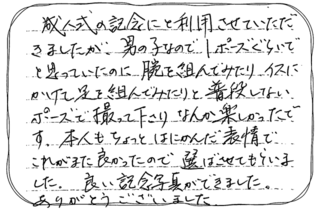 成人式の記念にと利用させていただ
きましたが、男の子なので1ポーズぐらいで
と思っていたのに腕を組んでみたりイスに
かけて足を組んでみたりと普段しない
ポーズで撮って下さりなんか楽しかったで
す。本人もちょっとはにかんだ表情で
これがまた良かったので選ばせてもらいま
した。良い記念写真ができました。
ありがとうございました